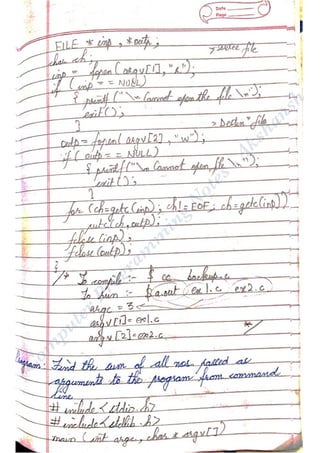 Date
Page
FILE *inp, *outp;
char ch;
> source file
inp = fopen (argv[1], "r");
if (inp == NULL)
{ printf ("\n Cannot open the file \n");
exit();
}
> Destn file
outp = fopen (argv[2], "w");
if (outp == NULL)
{ printf ("\n Cannot open file \n");
exit();
}
for (ch=getc(inp); ch!=EOF; ch=getc(inp))
putc(ch, outp);
fclose(inp);
fclose(outp);
}
/* To compile :- $ cc backup.c
To run :- $ a.out ex1.c ex2.c
argc = 3
argv[1]=ex1.c
argv[2]=ex2.c */
Program: Find the sum of all nos. passed as
arguments to the program from command
line
#include<stdio.h>
#include<stdlib.h>
main (int argc, char * argv[])